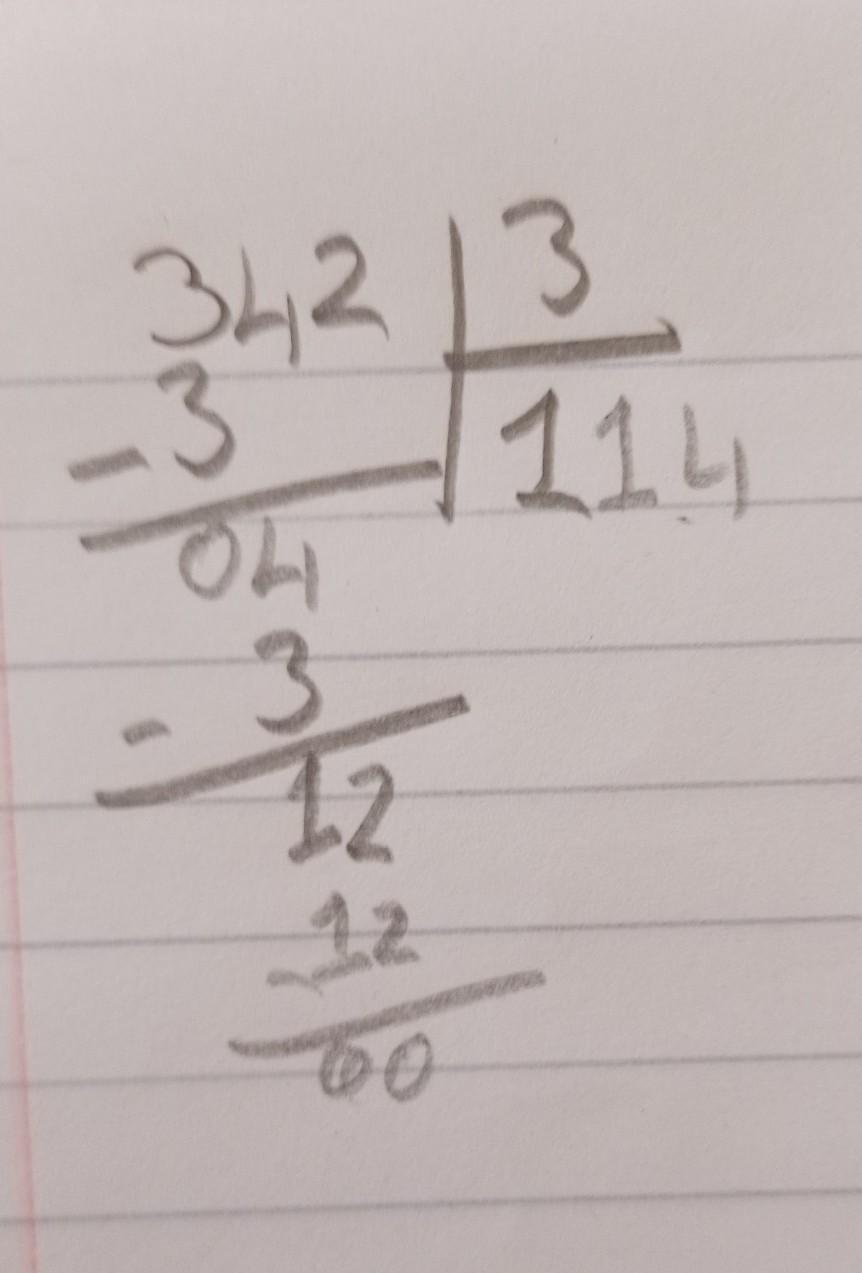 342 3
-3 114
04
- 3
12
-12
00